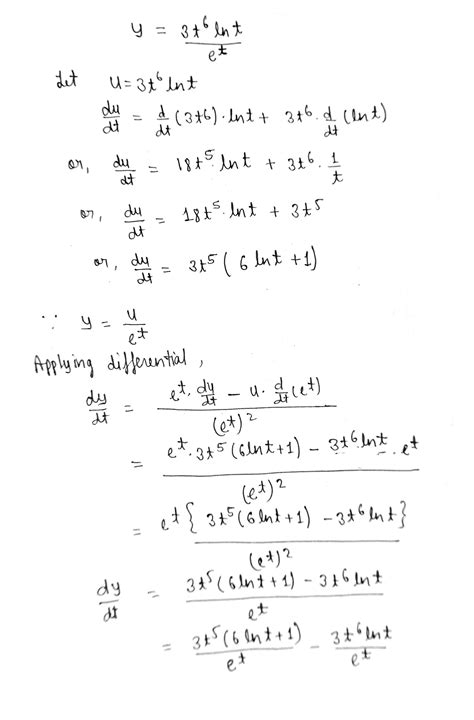 y = 3t⁶ ln t / eᵗ
Let u = 3t⁶ ln t
du/dt = d/dt (3t6) · ln t + 3t⁶ · d/dt (ln t)
or, du/dt = 18t⁵ · ln t + 3t⁶ · 1/t
or, du/dt = 18t⁵ · ln t + 3t⁵
or, du/dt = 3t⁵ ( 6 ln t + 1)
∵ y = u / eᵗ
Applying differential,
dy/dt = eᵗ · du/dt − u · d/dt (eᵗ) / (eᵗ)²
= eᵗ · 3t⁵ (6 ln t + 1) − 3t⁶ ln t . eᵗ / (eᵗ)²
= eᵗ { 3t⁵ (6 ln t + 1) − 3t⁶ ln t } / (eᵗ)²
dy/dt = 3t⁵ (6 ln t + 1) − 3t⁶ ln t / eᵗ
= 3t⁵ (6 ln t + 1) / eᵗ − 3t⁶ ln t / eᵗ